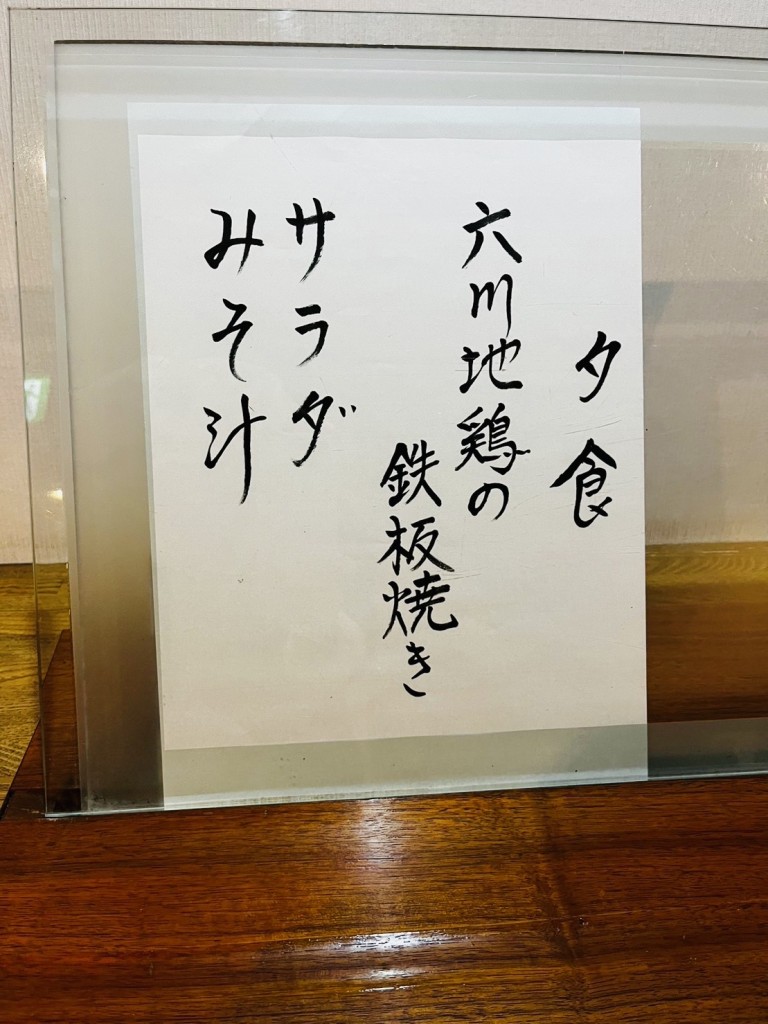 夕食
六川地鶏の
鉄板焼き
サラダ
みそ汁